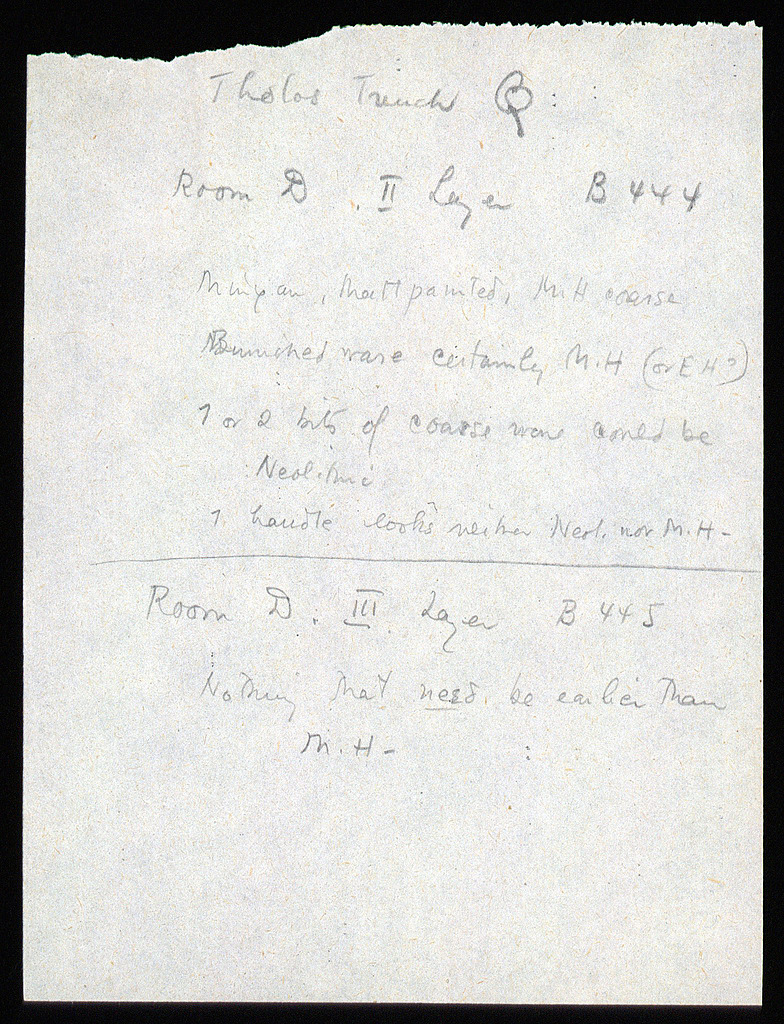 Tholos Trench Q
Room D. II Layer B 444
Minyan, Matt painted, M.H coarse
Burnished ware certainly M.H (or E H?)
1 or 2 bits of coarse ware could be
Neolithic
1 handle looks neither Neol. nor M.H-
Room D. III Layer B 445
Nothing that need be earlier than
M.H-